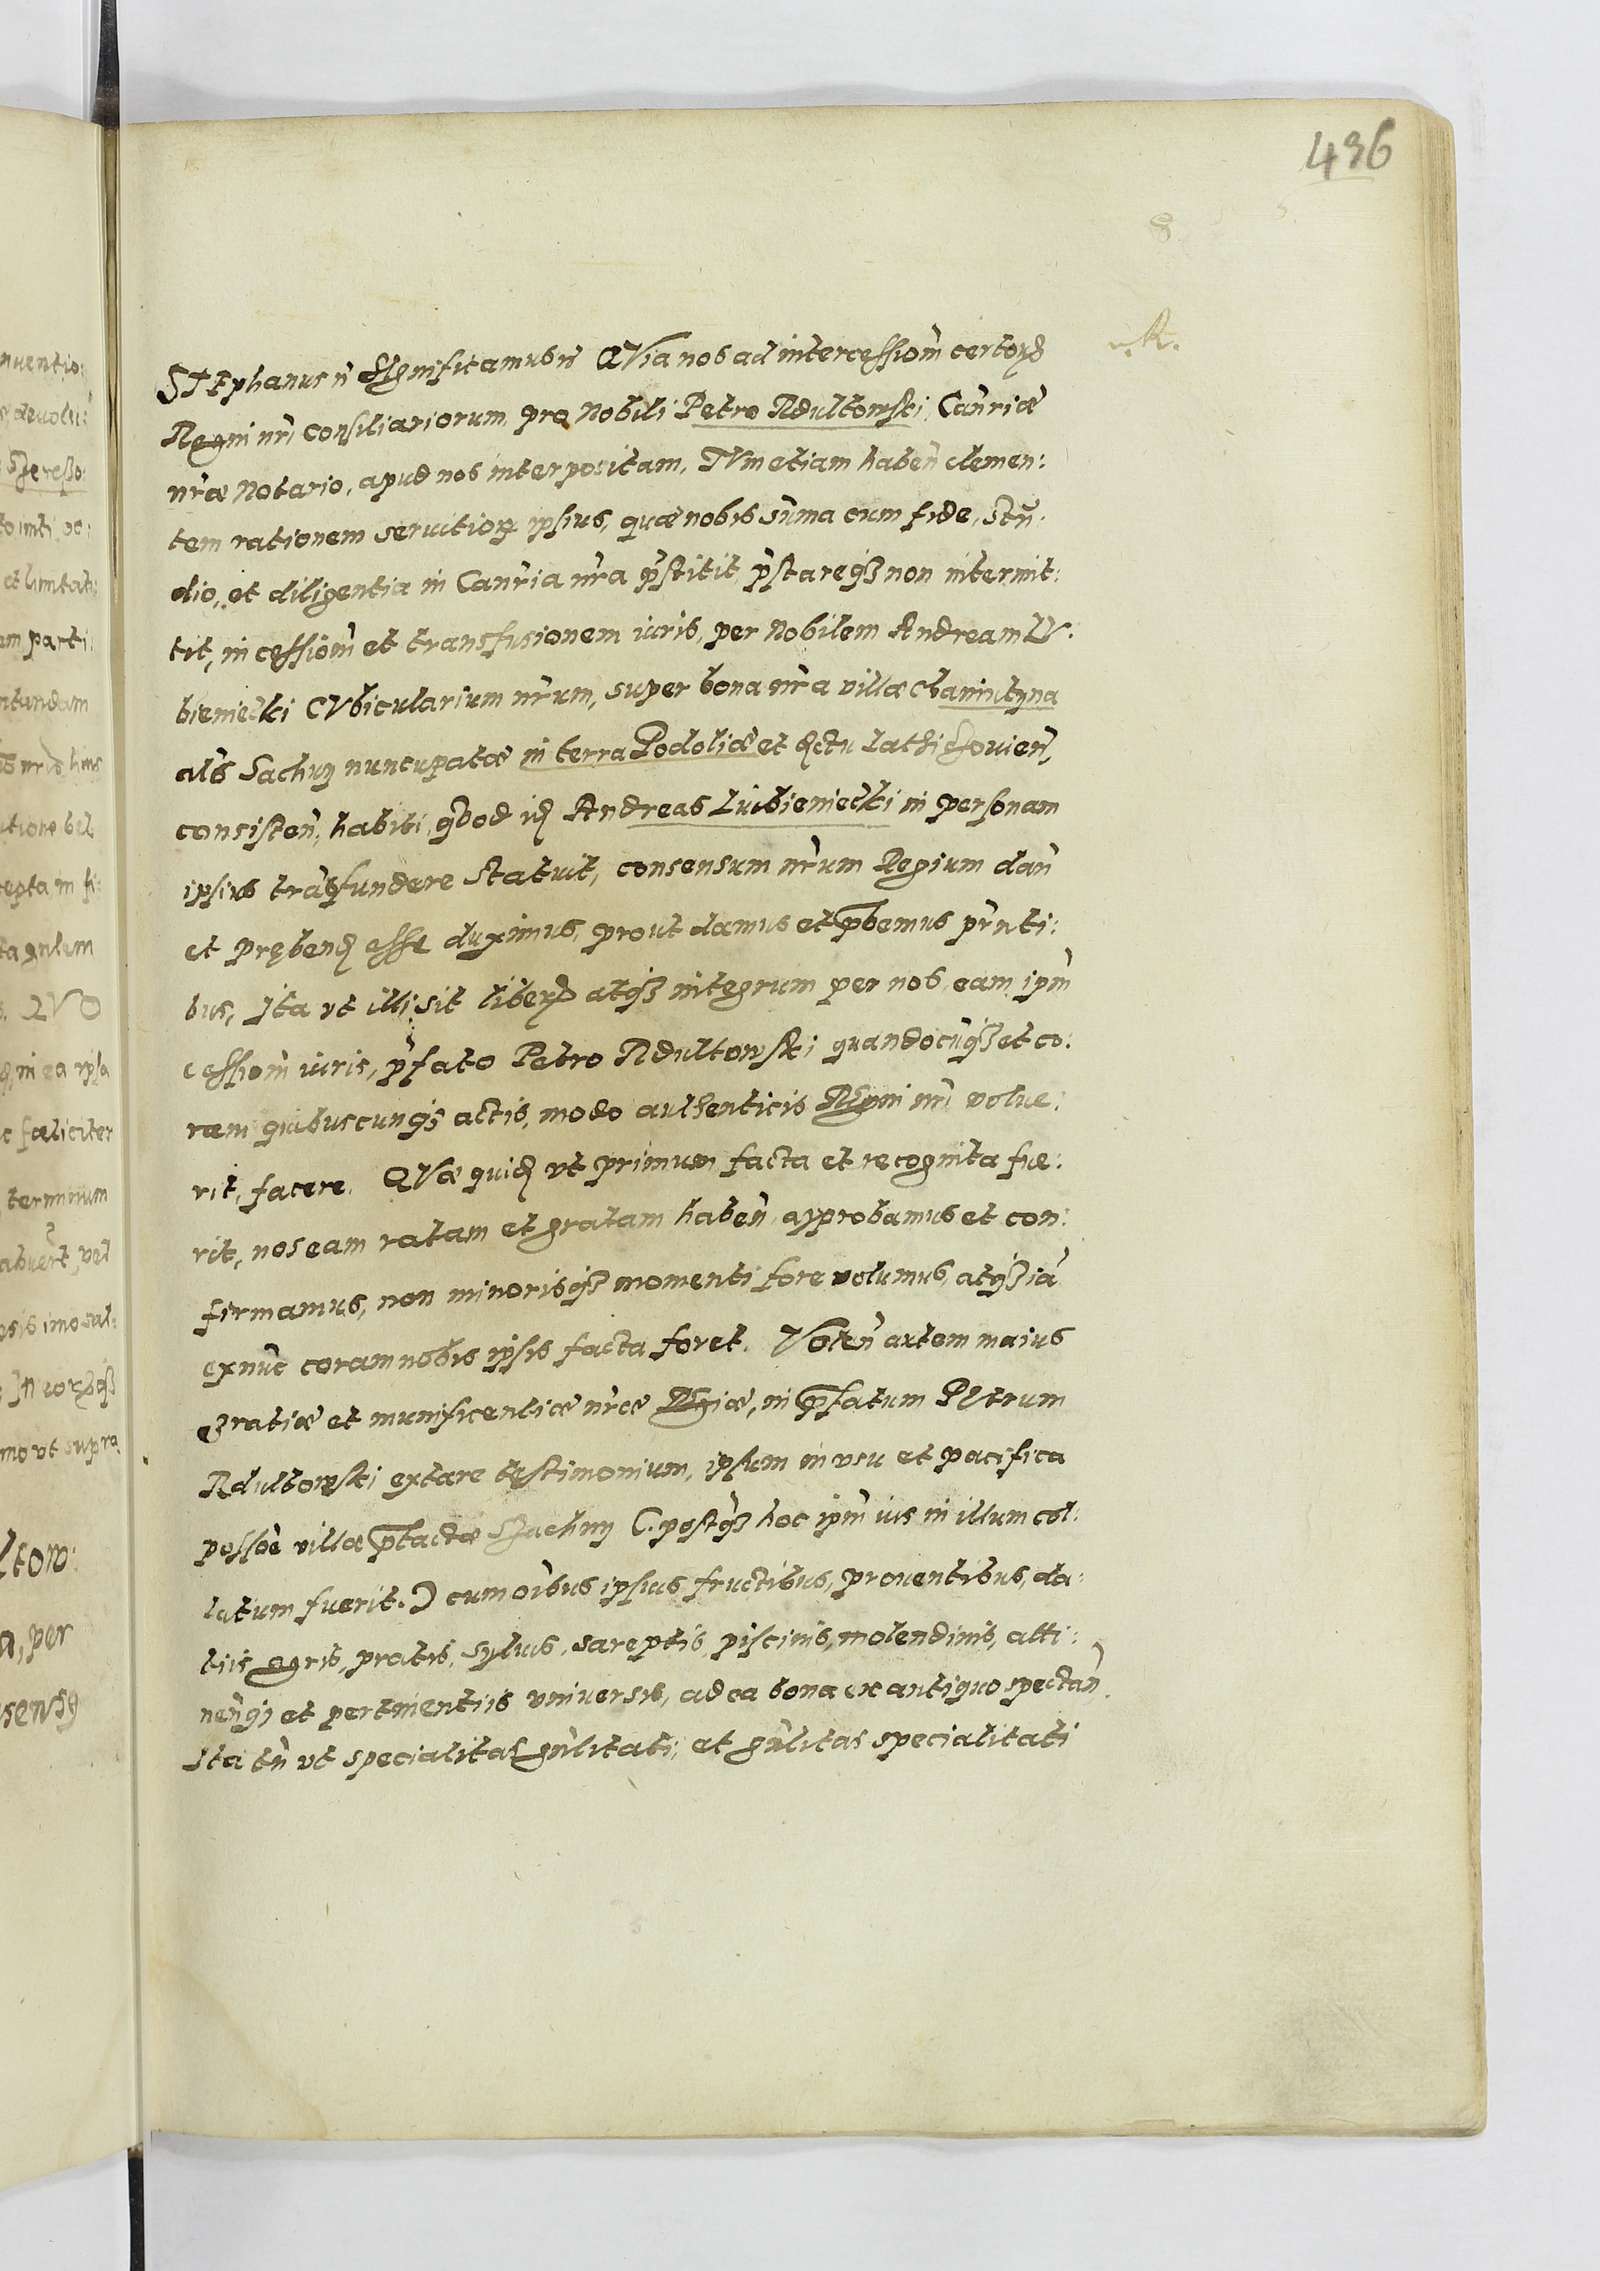 436
STEphanus ñ SIgnificamus ñ QVia nos ad intercessiom̃ certorȝ
Regni nr̃i Consiliariorum, pro Nobili Petro Rdultowski, Canr̃iæ
nr̃æ Notario, apud nos interpositam, TVm etiam habeñ clemen:
tem rationem seruitiorȝ ipsius, quæ nobis sũma cum fide, Stũ:
dio, et diligentia in Canr̃ia nr̃a p̃stitit p̃stareqȝ non intermit:
tit, in cessiom̃ et transfusionem iuris, per Nobilem Andream LV:
bieniecki CVbicularium nr̃um, super bona nr̃a villæ Chaniutyna
als Sachny nuncupatæ in terra Podoliæ et
consisteñ, habiti, q̃d Andreas Lubieniecki in personam
ipsius trãsfundere statuit, consensum nr̃um Regium dañ
et pręben esse duximus, prout damus et p̃bemus pr̃nti:
bus, Ita vt illi sit liberȝ atqȝ integrum per nos, eam ipm̃
cessiom̃ iuris, p̃fato Petro Rdultowski quandocũqȝ et co:
ram quibuscunqȝ actis, modo authenticis REgni nr̃i volue:
rit, facere. QVæ quid vt primum facta et recognita fue:
rit, nos eam ratam et gratam habeñ, approbamus et con:
firmamus, non minorisqȝ momenti fore volumus, atqȝ iã
exnũc coram nobis ipsis facta foret. Voleñ autem maius
gratiæ et munificentiæ nr̃æ REgiæ, in p̃fatum PEtrum
Rdultowski extare testimonium, ipsum in vsu et pacifica
possõe villæ p̃tactæ Sachny (. postqȝ hoc ipm̃ ius in illum col:
latum fuerit.) cum oĩbus ipsius fructibus, prouentibus, da:
tiis agris, pratis, syluis, sareptis, piscinis, molendinis, atti:
neñ et pertinentiis vniuersis, ad ea bona ex antiquo spectañ.
Ita tñ vt specialitas gñlitati, et gñlitas specialitati